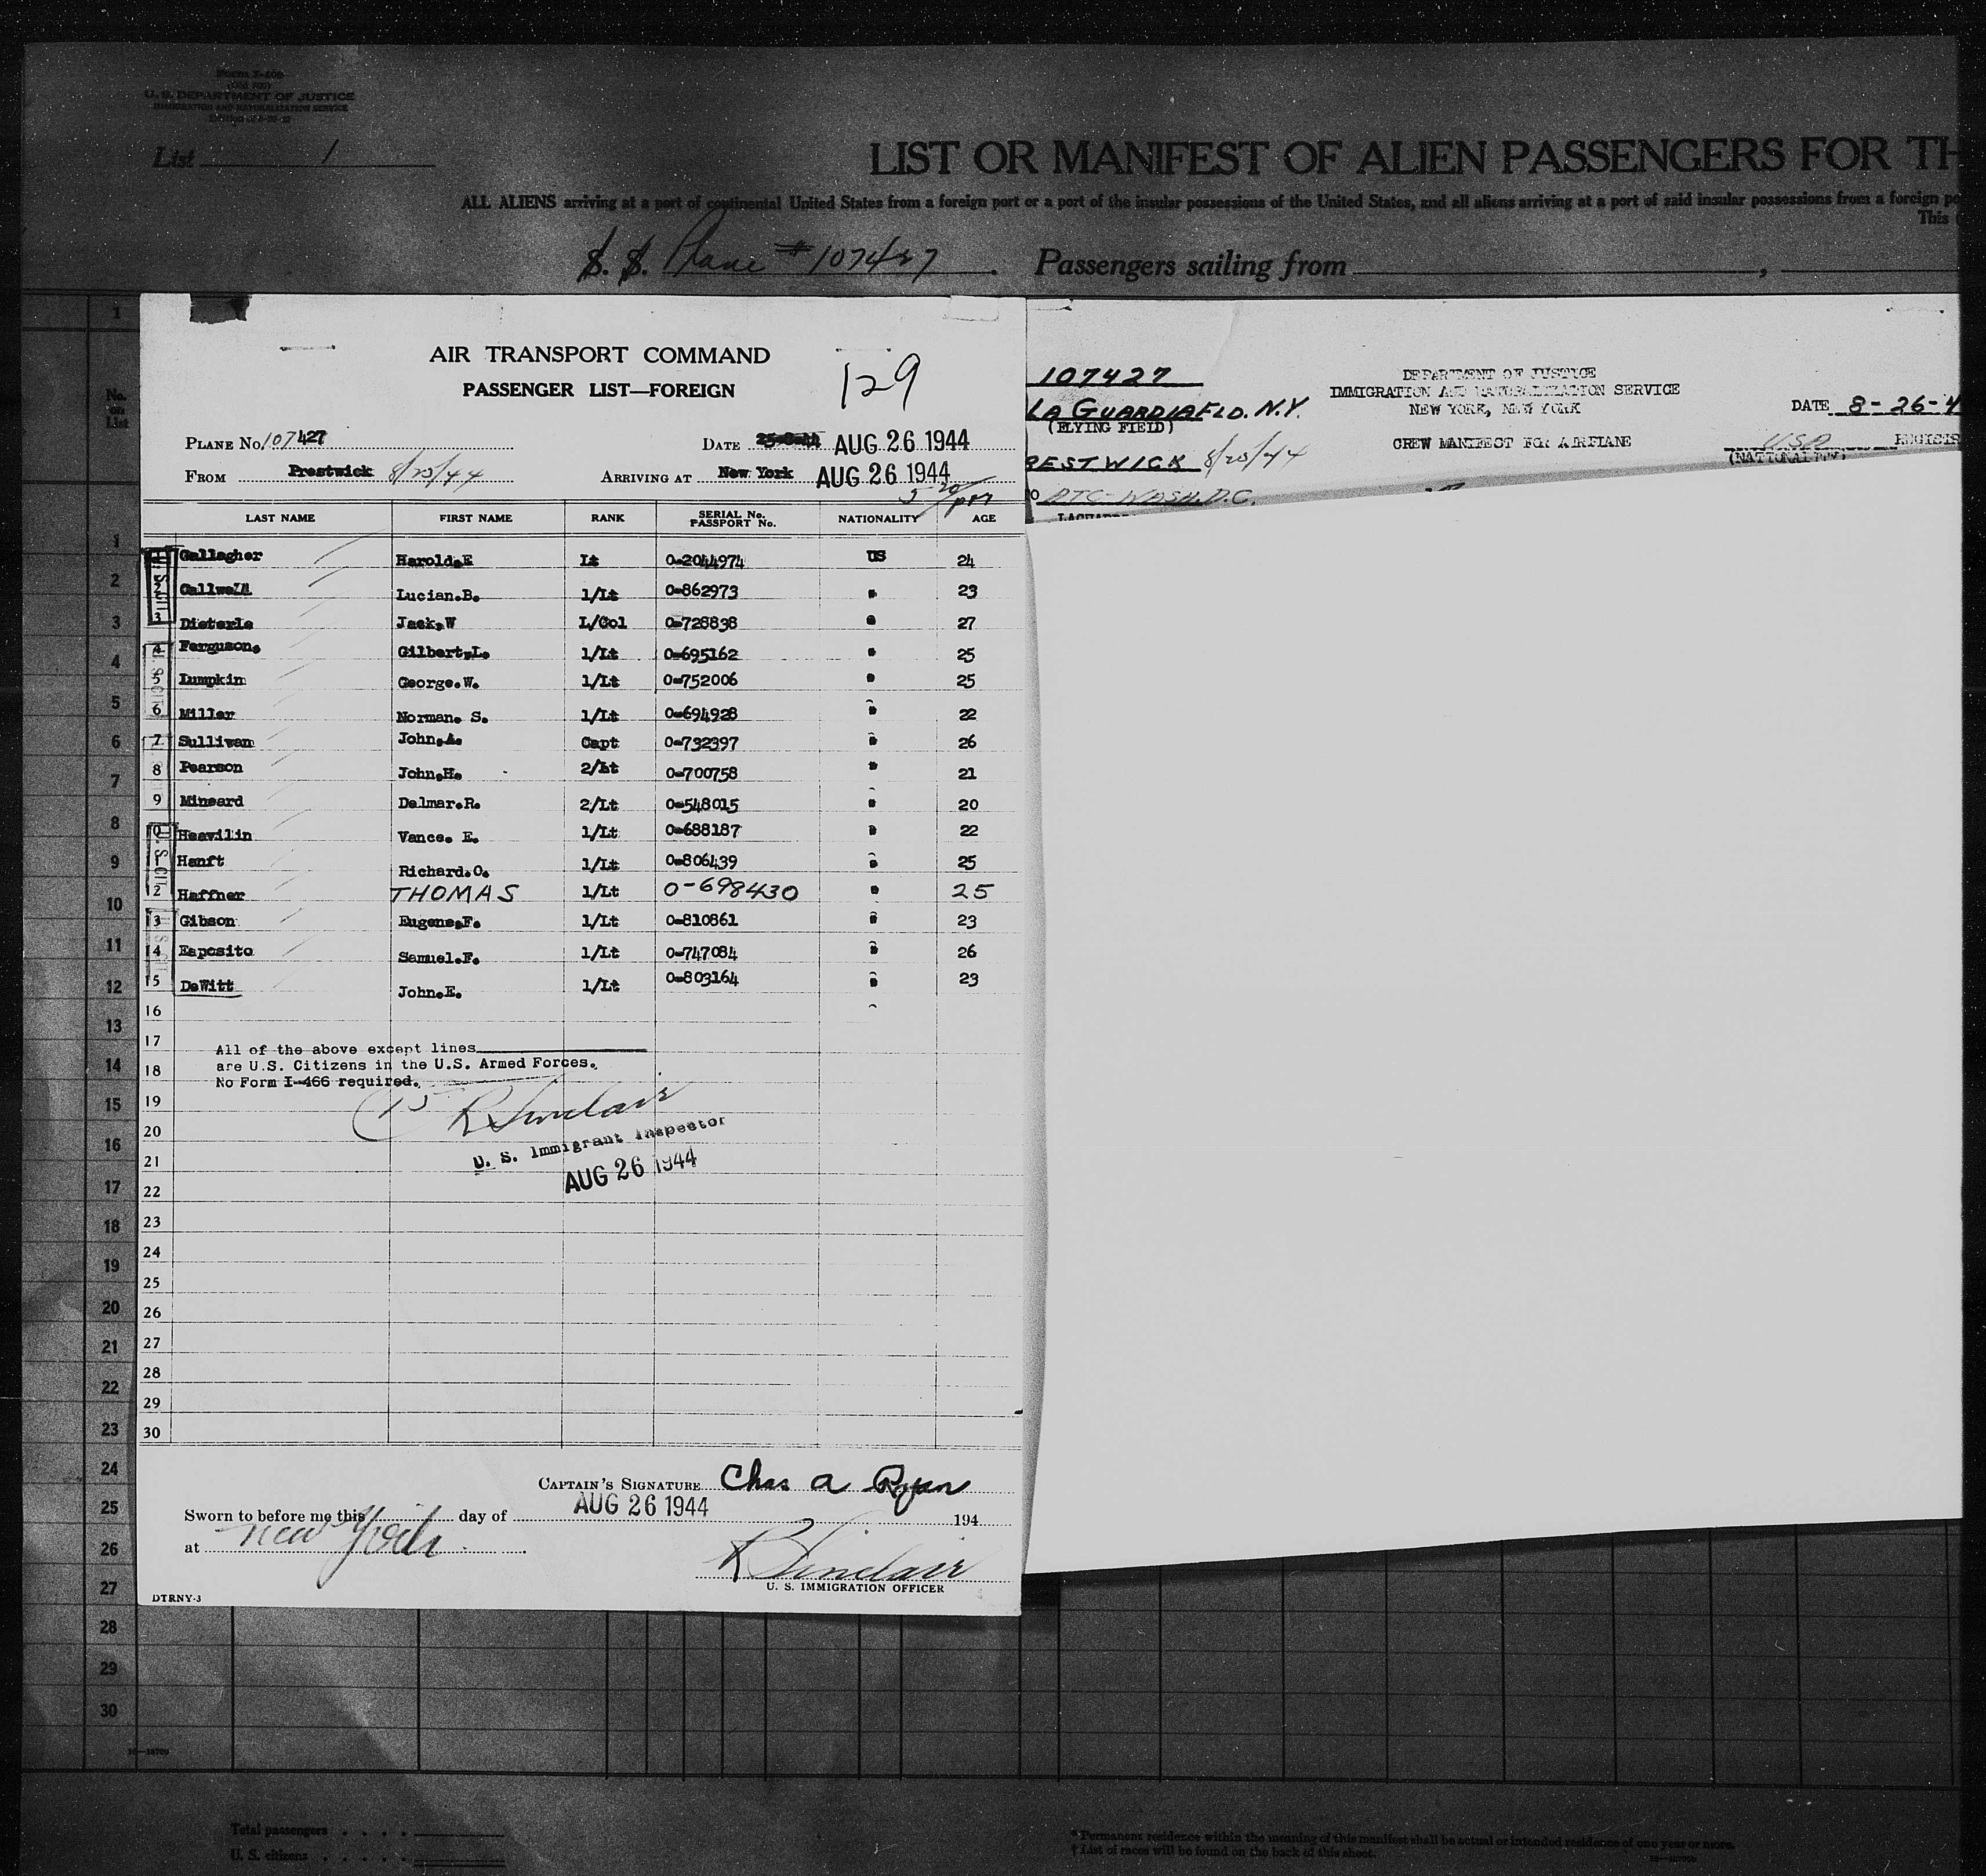 U. S. DEPARTMENT OF JUSTICE
IMMIGRATION AND NATURALIZATION SERVICE
List 1
LIST OR MANIFEST OF ALIEN PASSENGERS FOR TH
ALL ALIENS arriving at a port of continental United States from a foreign port or a port of the insular possessions of the United States, and all aliens arriving at a port of said insular possessions from a foreign po
This
S. S. Plane #107427 . Passengers sailing from ,
No. on List
AIR TRANSPORT COMMAND
PASSENGER LIST—FOREIGN
129
PLANE No. 107427 DATE 25-8-44 AUG 26 1944
FROM Prestwick 8/25/44 ARRIVING AT New York AUG 26 1944
5-20/pm
LAST NAME FIRST NAME RANK SERIAL No. PASSPORT No. NATIONALITY AGE
1 Gallagher Harold.E Lt 0-2044974 US 24
2 Lucian.B. 1/Lt 0-862973 " 23
3 Dieterle Jack.W L/Col 0-728838 " 27
4 Ferguson. Gilbert.L. 1/Lt 0-695162 " 25
5 Lumpkin George.W. 1/Lt 0-752006 " 25
6 Miller Norman. S. 1/Lt 0-694928 " 22
7 Sullivan John.A. Capt 0-732397 " 26
8 Pearson John.H. 2/Lt 0-700758 " 21
9 Mineard Delmar.R. 2/Lt 0-548015 " 20
10 Heavilin Vance. E. 1/Lt 0-688187 " 22
11 Hanft Richard.O. 1/Lt 0-806439 " 25
12 Haffner THOMAS 1/Lt 0-698430 " 25
13 Gibson Eugene.F. 1/Lt 0-810861 " 23
14 Esposito Samuel.F. 1/Lt 0-747084 " 26
15 DeWitt John.E. 1/Lt 0-803164 " 23
16
17
All of the above except lines
18 are U.S. Citizens in the U.S. Armed Forces.
No Form I-466 required.
19 15 R Sinclair
20
U. S. Immigrant Inspector
21 AUG 26 1944
22
23
24
25
26
27
28
29
30
CAPTAIN'S SIGNATURE Chas A Ryan
Sworn to before me this day of AUG 26 1944 194
at New York
R Sinclair
U. S. IMMIGRATION OFFICER
DTRNY-3
107427
LA GUARDIA FLD. N.Y.
(FLYING FIELD)
RESTWICK 8/25/44
TO ATC-WASH.D.C.
DEPARTMENT OF JUSTICE
IMMIGRATION AND NATURALIZATION SERVICE
NEW YORK, NEW YORK
DATE 8-26-4
CREW MANIFEST FOR AIRPLANE
USA REGISTR
(NATIONALITY)
1
2
3
4
5
6
7
8
9
10
11
12
13
14
15
16
17
18
19
20
21
22
23
24
25
26
27
28
29
30
Total passengers . . . .
U. S. citizens . . . . .
* Permanent residence within the meaning of this manifest shall be actual or intended residence of one year or more.
† List of races will be found on the back of this sheet.